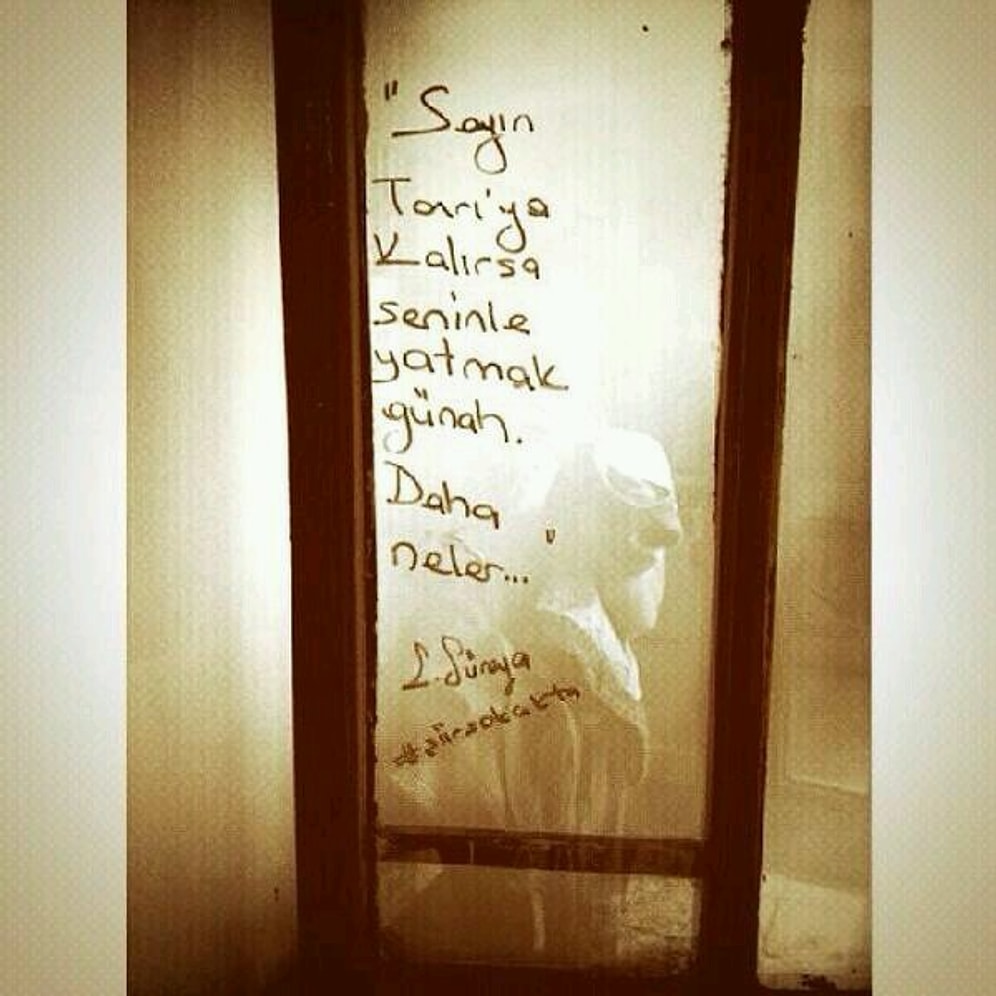 "Sayın
Tanrı'ya
Kalırsa
seninle
yatmak
günah.
Daha
neler..."
C. Süreya
#siirsokakta